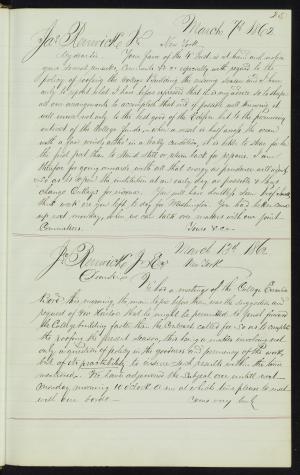 25
March 7th 1862
Jas Renwick Jr
New York
My dear Sir. Your favor of the 4th Inst is at hand and
your several remarks, Comments &c &c especially with regard to the
policy of roofing the College building the coming season and I have
only to repeat what I have before expressed that it is my desire so to shape
all our arrangements to accomplish that end if possible well knowing it
will innure not only to the best good of the Edifice but to the pecuniary
interest of the College funds, when a vessel is half way the ocean
with a fair wind, rather in a leaky condition, it is like to steer for
the first port than to stand still or return back for repairs. I am
therefore for going onwards with all that energy as prudence will
so as to open the institution at an early day as possible &
change College for
You will have doubtless seen
that week ere you left to day for Washington. You had better come
up next monday, when we can talk over matters with our joint
Committees.
Yours &c
March 13th 1862
Jas Renwick Jr Esq
New York
Dear Sir
We had a meeting of the College Executive
Board this morning, the main topic before them was the suggestion and
request of
that he might be permitted to
forward
the College building faster than the Contract called for so as to complete
the roofing the present season, this being a matter involving not
only a question of policy in the goodness and permanency of the work,
but of its practicability to ensure such results within the time
mentioned. We have adjourned the subject over until next
Monday morning 10 o'clock a m at which time please to meet
with our board —
Yours very truly